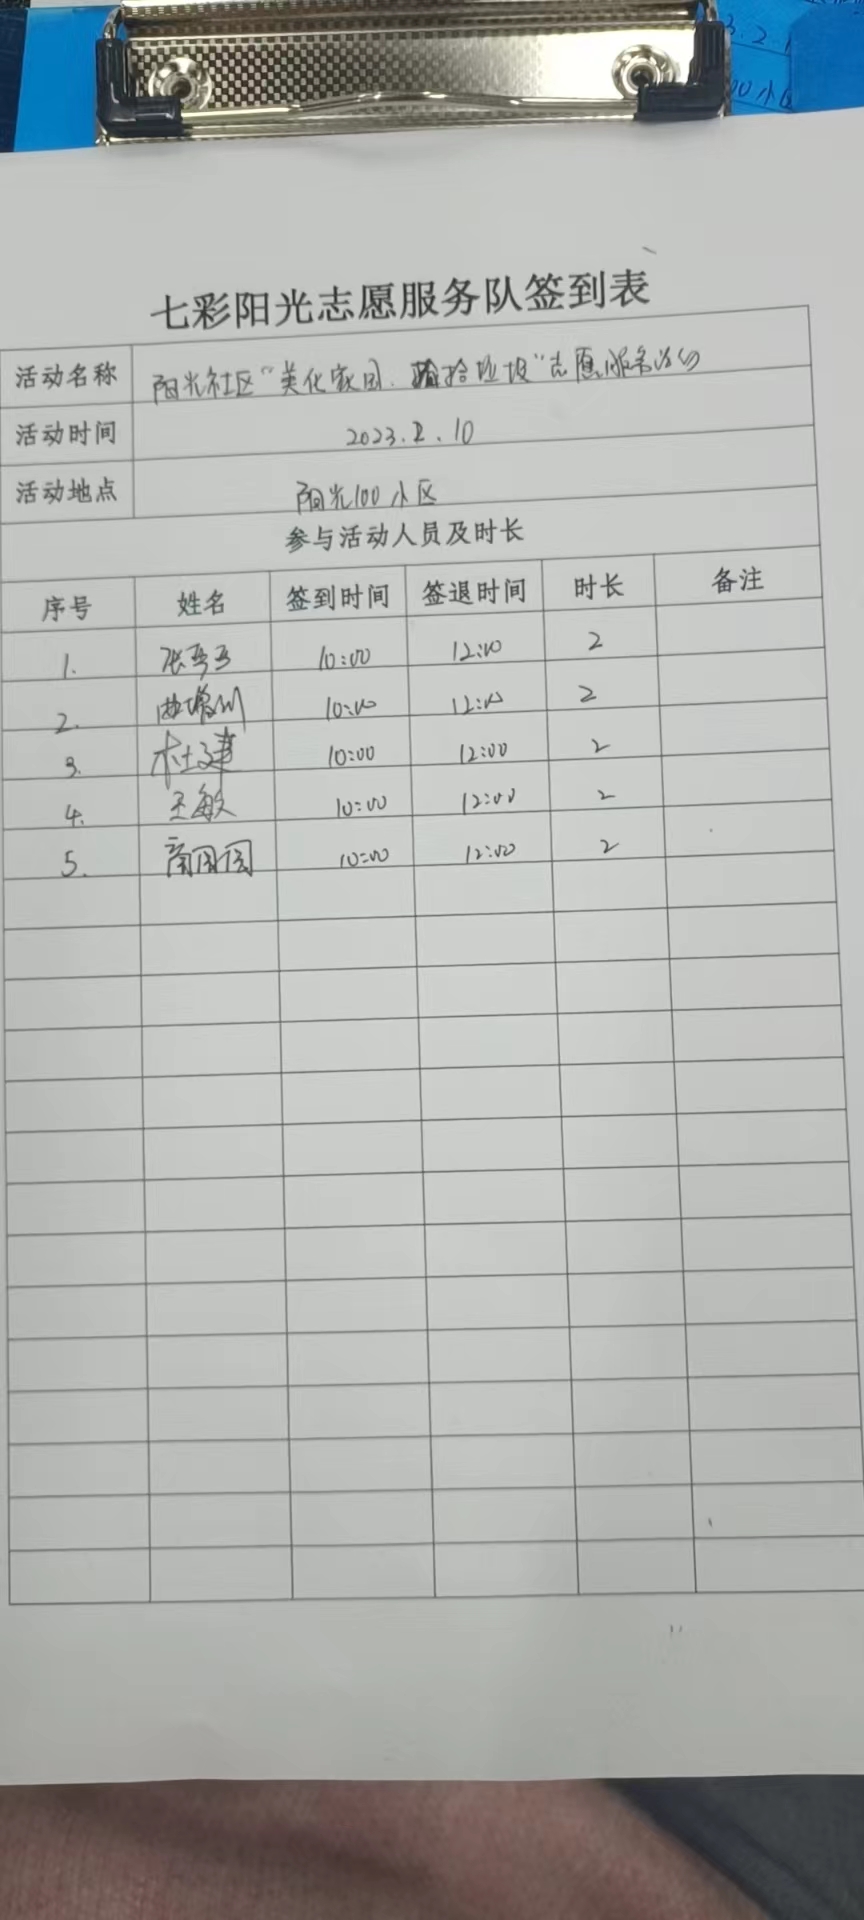 3.2.1
00小区
七彩阳光志愿服务队签到表
活动名称 阳光社区“美化家园、捡拾垃圾”志愿服务活动
活动时间 2023.2.10
活动地点 阳光100小区
参与活动人员及时长
序号 姓名 签到时间 签退时间 时长 备注
1. 10:00 12:00 2
2. 10:00 12:00 2
3. 杜建 10:00 12:00 2
4. 王敏 10:00 12:00 2
5. 10:00 12:00 2